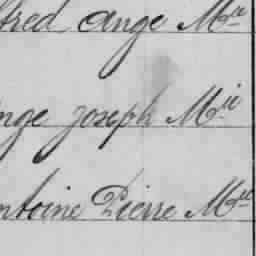 fred ange Mie
nge joseph Mie
ntoine Pierre Mie